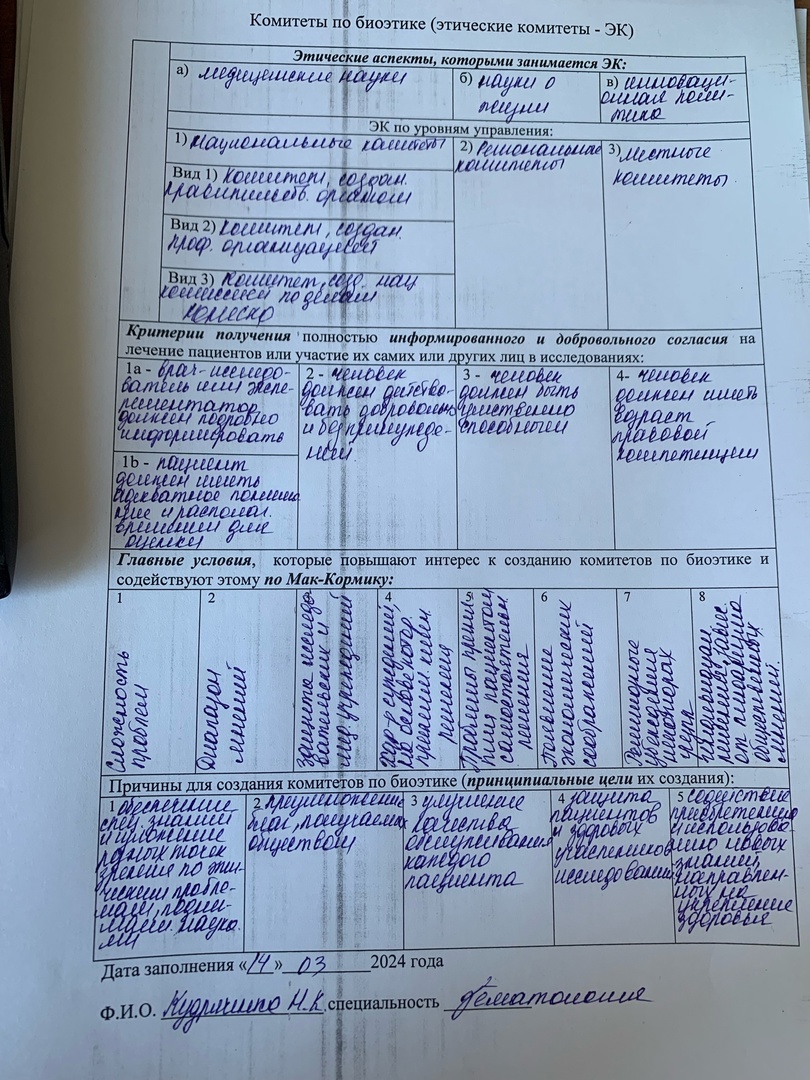 Комитеты по биоэтике (этические комитеты - ЭК)
Этические аспекты, которыми занимается ЭК:
а) медицинские науки
б) науки о
жизни
в) инноваци-
онная поли-
тика
ЭК по уровням управления:
1) Национальные комитеты
2) Региональные
комитеты
3) Местные
комитеты
Вид 1) комитет, создан.
правительств. органом
Вид 2) комитет, создан.
проф. организацией
Вид 3) комитет, созд. нац
комиссией по делам
ЮНЕСКО
Критерии получения полностью информированного и добровольного согласия на
лечение пациентов или участие их самих или других лиц в исследованиях:
1a - врач-исследо-
ватель или экспе-
риментатор
должен подробно
информировать
1b - пациент
должен иметь
адекватное понима
ние и располаг.
временем для
оценки
2 - человек
должен действо-
вать добровольно
и без принужде-
ний
3 - человек
должен быть
умственно
способным
4- человек
должен иметь
возраст
правовой
компетенции
Главные условия, которые повышают интерес к созданию комитетов по биоэтике и
содействуют этому по Мак-Кормику:
1
Сложность
проблем
2
Диапазон
мнений
защиты исследо-
вательских и
мед учреждений
4
суждений,
на основе котор.
приняты клин.
решения
5
Проблемы приня-
тия пациентом
самостоятельн.
решения
6
появление
экономических
соображений
7
Религиозные
убеждения
некоторых
8
решений
от
общественных
мнений.
Причины для создания комитетов по биоэтике (принципиальные цели их создания):
1 обеспечение
спец. знаний
и
разных точек
зрения по эти-
ческим пробле-
мам, подни-
маем. наука-
ми
2 приумножение
благ, получаемых
обществом
3 улучшение
качества
обслуживания
каждого
пациента
4 защита
пациентов
и здоровых
участников
исследования
5 содействие
приобретению
и использова-
нию новых
знаний,
направлен-
ных на
укрепление
здоровья
Дата заполнения «14» 03 2024 года
Ф.И.О. Н.К. специальность Гематология